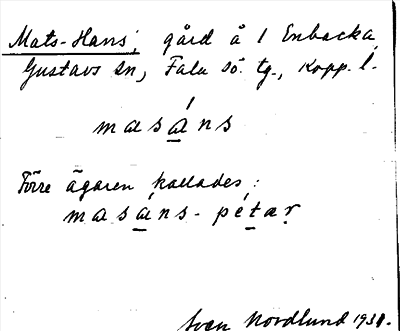 Mats-Hans, gård å 1 Enbacka,
Gustavs sn, Falu sö. tg., Kopp. l.
masáns
Förre ägaren kallades:
masáns-pétar
Sven Nordlund 1931.